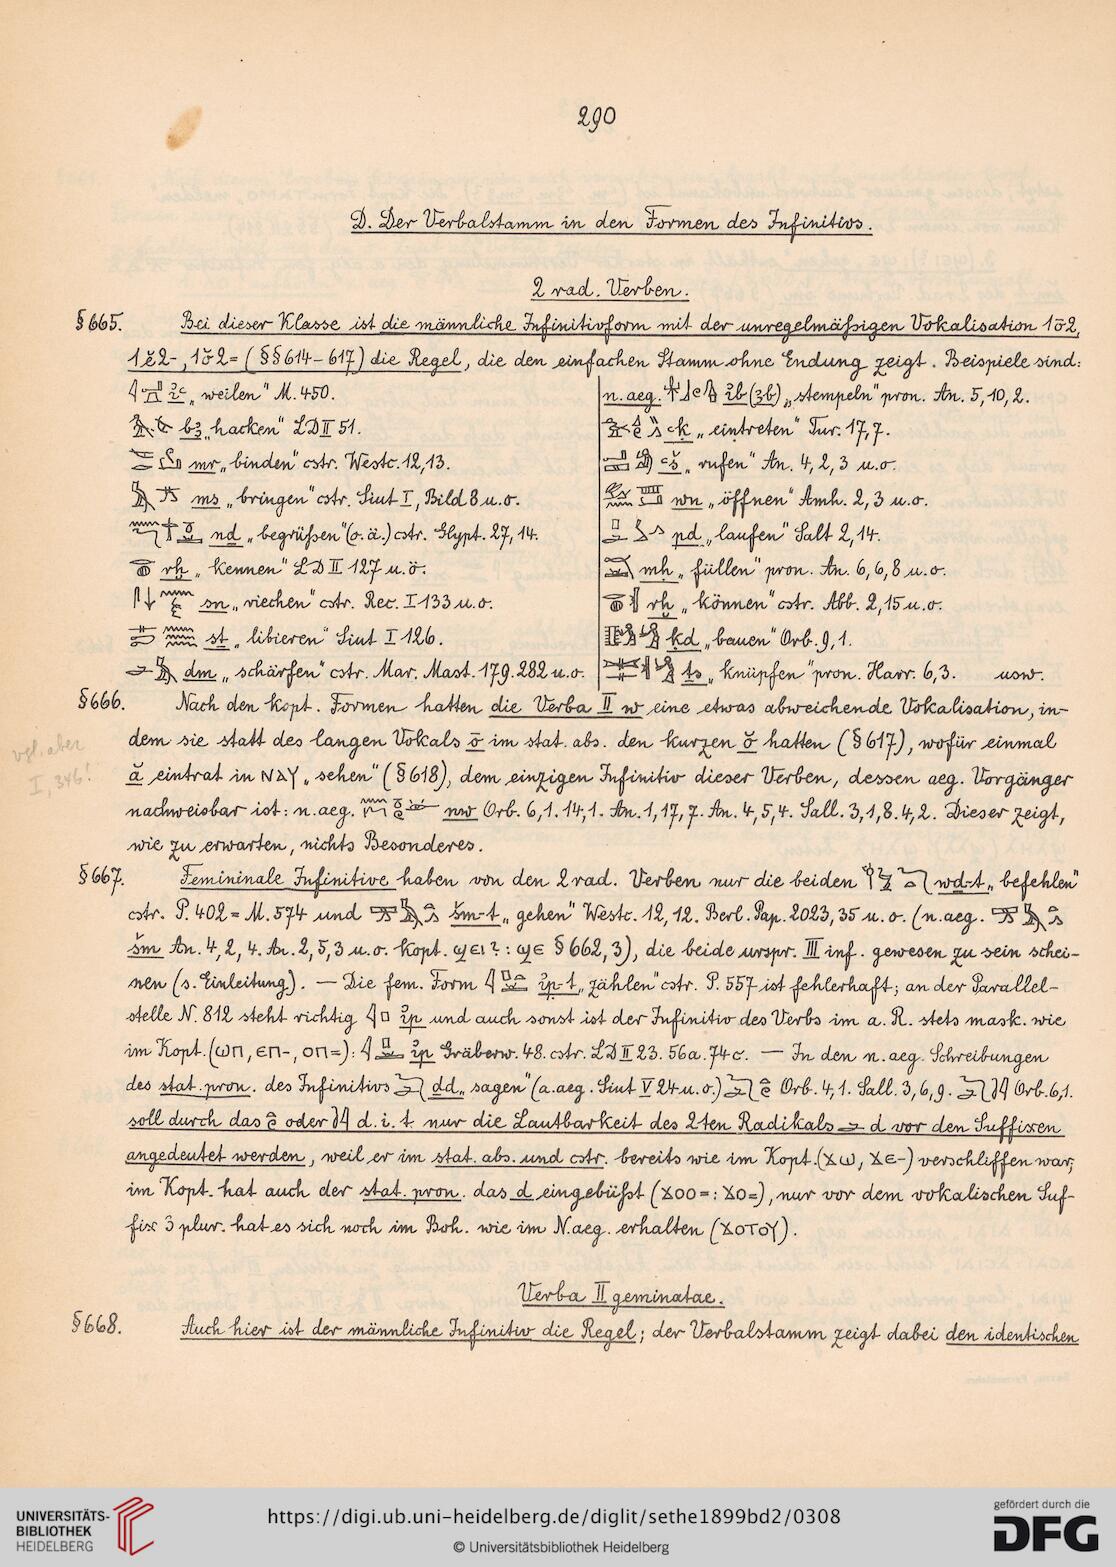 290
D. Der Verbalstamm in den Formen des Infinitivs.
2 rad. Verben.
§665. Bei dieser Klasse ist die männliche Infinitivform mit der unregelmäßigen Vokalisation 1ō2,
1ĕ2-, 1ŏ2= (§§614-617) die Regel, die den einfachen Stamm ohne Endung zeigt. Beispiele sind:
„weilen" M. 450.
bꜣ „hacken" LD II 51.
mr „binden" cstr. Westc. 12,13.
ms „bringen" cstr. Siut I, Bild 8 u.o.
nḏ „begrüßen" (o.ä.) cstr. Glypt. 27,14.
rḫ „kennen" LD II 127 u.ö.
sn „riechen" cstr. Rec. I 133 u.o.
st „libieren" Siut I 126.
dm „schärfen" cstr. Mar. Mast. 179.282 u.o.
n.aeg. ꞽb (ꜣb) „stempeln" pron. An. 5,10,2.
ꜥḳ „eintreten" Tur. 17,7.
ꜥš „rufen" An. 4,2,3 u.o.
wn „öffnen" Amh. 2,3 u.o.
pd „laufen" Salt 2,14.
mḥ „füllen" pron. An. 6,6,8 u.o.
rḫ „können" cstr. Abb. 2,15 u.o.
ḳd „bauen" Orb. 9,1.
ṯs „knüpfen" pron. Harr. 6,3. usw.
§666. Nach den kopt. Formen hatten die Verba II w eine etwas abweichende Vokalisation, in-
dem sie statt des langen Vokals ō im stat. abs. den kurzen ŏ hatten (§617), wofür einmal
vgl. aber
I, 346!
ă eintrat in ⲛⲁⲩ „sehen" (§618), dem einzigen Infinitiv dieser Verben, dessen aeg. Vorgänger
nachweisbar ist: n.aeg. nw Orb. 6,1. 14,1. An. 1,17,7. An. 4,5,4. Sall. 3,1,8. 4,2. Dieser zeigt,
wie zu erwarten, nichts Besonderes.
§667. Femininale Infinitive haben von den 2 rad. Verben nur die beiden wḏ-t „befehlen"
cstr. P. 402 = M. 574 und šm-t „gehen" Westc. 12,12. Berl. Pap. 2023, 35 u.o. (n.aeg.
šm An. 4,2,4. An. 2,5,3 u.o. Kopt. ϣⲉⲓ?: ϣⲉ §662,3), die beide urspr. III inf. gewesen zu sein schei-
nen (s. Einleitung). — Die fem. Form ꞽp-t „zählen" cstr. P. 557 ist fehlerhaft; an der Parallel-
stelle N. 812 steht richtig ꞽp und auch sonst ist der Infinitiv des Verbs im a. R. stets mask. wie
im Kopt. (ⲱⲡ, ⲉⲡ-, ⲟⲡ=): ꞽp Gräberw. 48. cstr. LD II 23. 56a. 74c. — In den n.aeg. Schreibungen
des stat. pron. des Infinitivs ḏd „sagen" (a.aeg. Siut V 24 u.o.) Orb. 4,1. Sall. 3,6,9. Orb. 6,1.
soll durch das oder d. i. t nur die Lautbarkeit des 2ten Radikals d vor den Suffixen
angedeutet werden, weil er im stat. abs. und cstr. bereits wie im Kopt. (ϫⲱ, ϫⲉ-) verschliffen war;
im Kopt. hat auch der stat. pron. das d eingebüßt (ϫⲟⲟ=: ϫⲟ=), nur vor dem vokalischen Suf-
fix 3 plur. hat es sich noch im Boh. wie im N.aeg. erhalten (ϫⲟⲧⲟⲩ).
Verba II geminatae.
§668. Auch hier ist der männliche Infinitiv die Regel; der Verbalstamm zeigt dabei den identischen
UNIVERSITÄTS-
BIBLIOTHEK
HEIDELBERG
https://digi.ub.uni-heidelberg.de/diglit/sethe1899bd2/0308
© Universitätsbibliothek Heidelberg
gefördert durch die
DFG